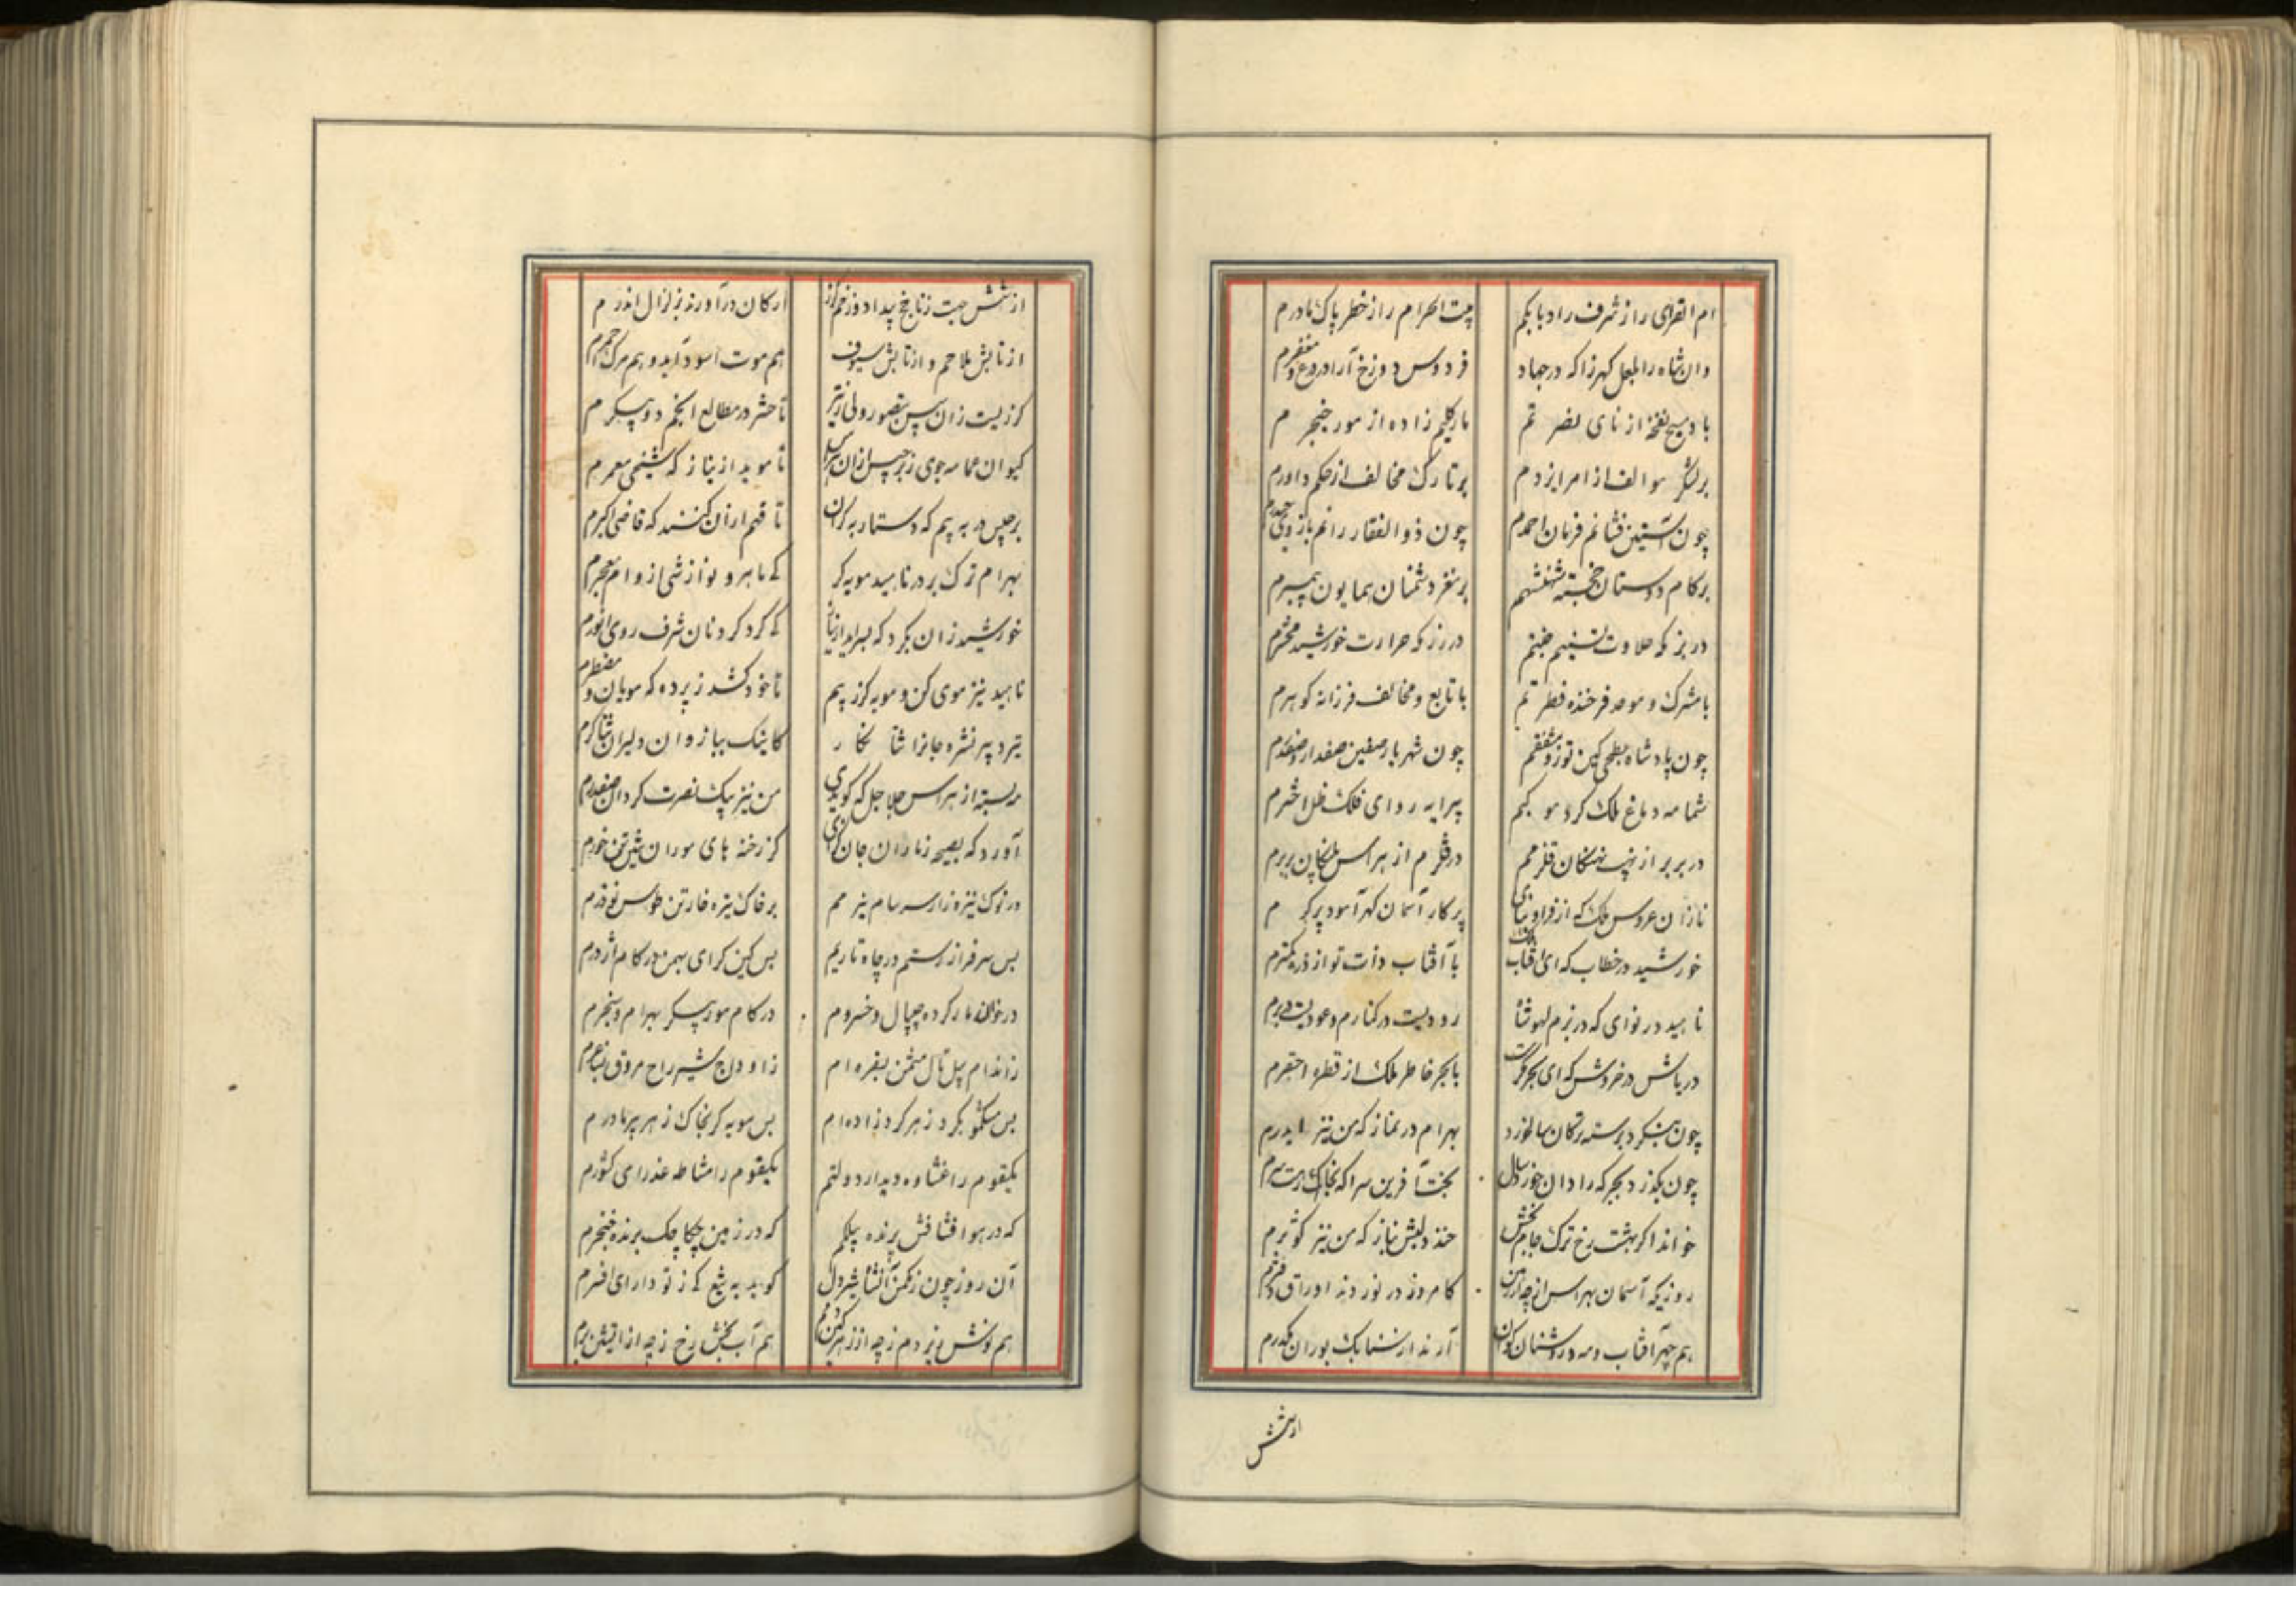 ام القرای را ز شرف راد بابکم
بیت الحرام را ز خطر پاک مادرم
وان شاه را بلعل کهرزا که در جهاد
فردوس دوزخ آرا درع و مغفرم
باد مسیح نفخه از نای نصر تم
مار کلیم زاده از مور خنجر م
بر لشکر موالف از امر ایزدم
بر تارک مخالف از حکم داورم
چون آستین فشانم فرمان احمدم
چون ذوالفقار رانم بازوی حیدرم
بر کام دوستان خجسته شهنشهم
بر مغز دشمنان همایون پیمبرم
در بزم که حلاوت تسنیم جنتم
در رزم که حرارت خورشید محشرم
با مشرک و موحد فرخنده فطر تم
با تابع و مخالف فرزانه کوهرم
چون پادشاه بطحی کین توز و مشفقم
چون شهریار صفین صفدار و صفدرم
شمامه دماغ ملک کرد مو کبم
پیرایه روای فلک ظل اخترم
در بربر از نهیب نهنکان قلزمم
در قلزم از هراس پلنکان بربرم
نازان عروس ملک که از فر او
پرکار آسمان کهر آمود پرکر م
خورشید در خطاب که ای آفتاب ملک
با آفتاب ذات تو از ذره کمترم
ناهید در نوای که در بزم لهو شاه
رودیست در کنارم و عودیست در برم
دریاش در خروش که ای بحر مکرمت
با بحر خاطر ملک از قطره احقرم
چون بنکرد برسته ترکان سالخورد
بهرام در نماز که من نیز ایدرم
چون بکذرد بحجر که رادان خورد سال
بخت آفرین سرا که بخاک درت سرم
خواند اکر بهشت رخ ترک جام بخش
خندد لبش بناز که من نیز کوثرم
روزیکه آسمان بهراس از چهار رکن
کامروز در نوردند اوراق دفترم
هم چهر آفتاب و مه در روشنان کون
آرند از سنابک بوران مکدرم
از شش
از شش جهت زنابخ پیدا دوزخم کز
ارکان درآورند بزلزال اندر م
از تابش ملاحم و از تابش سیوف
هم موت اسود آید و هم مرک احمرم
کر زیست زان سپس بتصور ولی زتیر
تا حشر در مطالع انجم دو پیکر م
کیوان عمامه جوی ز برجیس ازان هراس
تا موبد از نیاز که شیخی معمرم
برجیس در به بیم که دستار به کران
تا فهم ازان کنند که قاضی اکبرم
بهرام ترک بر در ناهید مویه کر
که ماهرو نوازشی از وام معجرم
خورشید زان بکرد که بسراید از نیاز
که کرد کردنان شرف روی انورم
ناهید نیز موی کن و مویه کر ز بیم
تا خود کشد ز پرده که مویان و مضطرم
تیر دبیر نشره جانرا ثنا نکا ر
کاینک ببازوان دلیران ثناکرم
مه بسته از هراس جلاجل که کویدی
من نیز پیک نصرت کردان صفدرم
آورد که بصیحه زنا دان جان کزای
کز رخنه های موران شیرین تن خورم
در نوک نیزه زار سر سام نیر مم
بر خاک تیره خار تن طوس نوذرم
بس سرفراز رستم در چاه تاریم
بس کین کرای بهمن در کام اژدرم
در خوان مار کرده چیپال و خسروم
در کام مور پیکر بهرام و سنجرم
زاندام پیل نال مثمن بقره ام
ز اوداج شیر راح مروق بساغرم
بس مشکمو بکرد زهر کرد زاده ام
بس مویه کر بخاک ز هر پیر مادر م
یکقوم را غشاوه دیدار دولتم
یکقوم را مشاطه عذرای کشورم
که در هوا فشافش پرنده بیلکم
که در زمین چکاچک برنده خنجرم
آن روز چون زمکمن آن شاه شیردل
کوید به تیغ که ز تو دارای افسرم
هم نوش ریز دم ز چه از زهر کین دمم
هم آب بخش رخ ز چه از آتشین برم